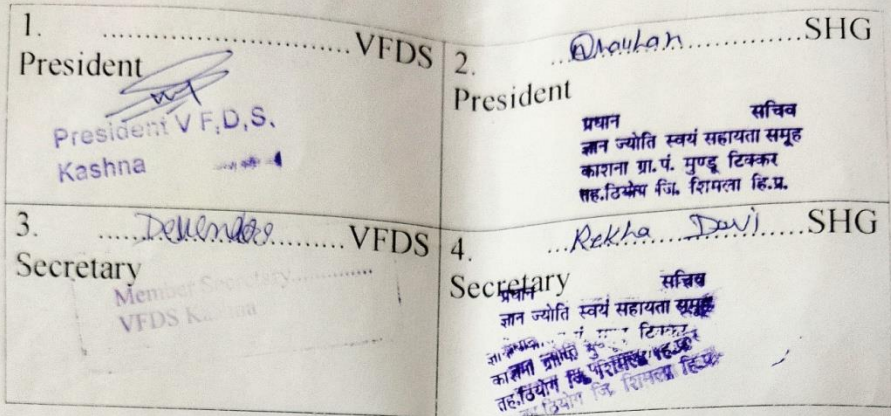 1. ..............................VFDS
President
President V.F.D.S.
Kashna
2. ...............................SHG
President
प्रधान सचिव
ज्ञान ज्योति स्वयं सहायता समूह
काशना ग्रा. पं. मुण्डू टिक्कर
तह.ठियोग जि. शिमला हि.प्र.
3. ..............................VFDS
Secretary
Member Secretary...............
VFDS Kashna
4. ...Rekha Devi......SHG
Secretary
प्रधान सचिव
ज्ञान ज्योति स्वयं सहायता समूह
टिक्कर
तह.ठियोग जि. शिमला हि.प्र.